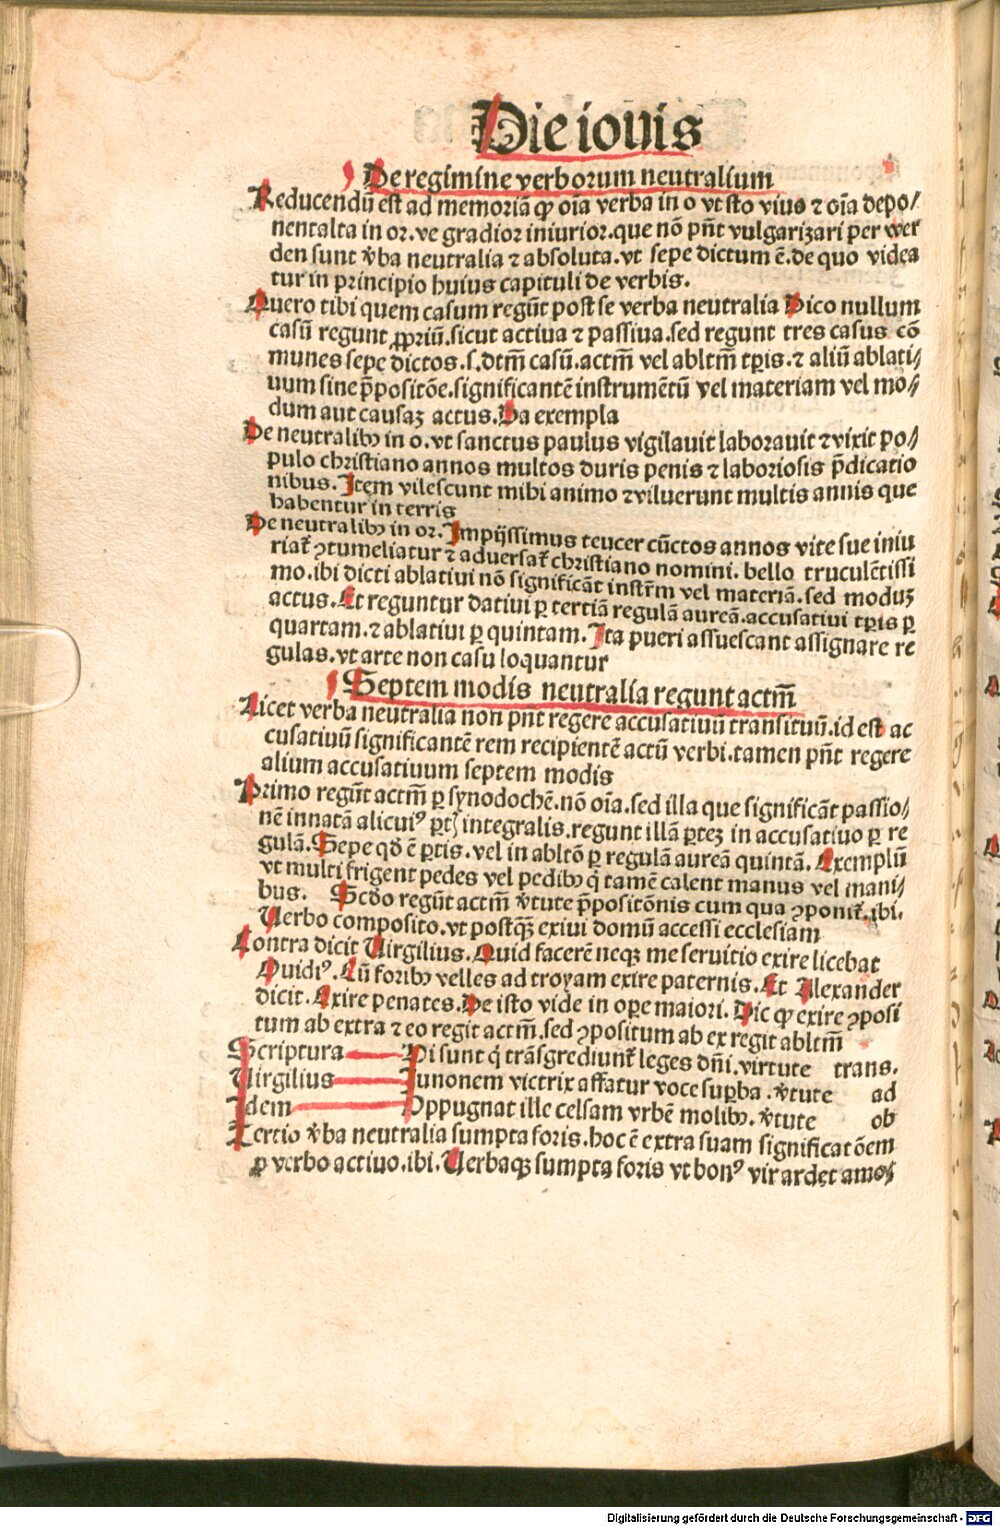 Die iouis
De regimine verborum neutralium
Reducendū est ad memoriā ꝙ oīa verba in o vt sto viuo ⁊ oīa depo⸗
nentalia in or.ve gradior iniurior.que nō pn̄t vulgarizari per wer
den sunt v̄ba neutralia ⁊ absoluta.vt sepe dictum ē.de quo videa
tur in principio huius capituli de verbis.
Quero tibi quem casum regūt post se verba neutralia Dico nullum
casū regunt ꝓpriū.sicut actiua ⁊ passiua.sed regunt tres casus cō
munes sepe dictos.s.dtm̄ casū.actm̄ vel abltm̄ tp̄is.⁊ aliū ablati⸗
uum sine p̄positōe.significantē instrumētū vel materiam vel mo⸗
dum aut causaꝫ actus.Da exempla
De neutralibꝫ in o.vt sanctus paulus vigilauit laborauit ⁊ vixit po⸗
pulo christiano annos multos duris penis ⁊ laboriosis p̄dicatio
nibus.Item vilescunt mihi animo ⁊ viluerunt multis annis que
habentur in terris
De neutralibꝫ in or.Impijssimus teucer cūctos annos vite sue iniu
riat᷑ ꝯtumeliatur ⁊ aduersat᷑ christiano nomini.bello truculētissi
mo.ibi dicti ablatiui nō significāt instr̄m vel materiā.sed moduꝫ
actus.Et reguntur datiui ꝑ tertiā regulā aureā.accusatiui tp̄is ꝑ
quartam.⁊ ablatiui ꝑ quintam.Ita pueri assuescant assignare re
gulas.vt arte non casu loquantur
Septem modis neutralia regunt actm̄
Licet verba neutralia non pn̄t regere accusatiuū transituū.id est ac
cusatiuū significantē rem recipientē actū verbi.tamen pn̄t regere
alium accusatiuum septem modis
Primo regūt actm̄ ꝑ synodochē.nō oīa.sed illa que significāt passio⸗
nē innatā alicuiꝰ ꝑtꝭ integralis.regunt illā ꝑteꝫ in accusatiuo ꝑ re
gulā.Sepe qd̄ ē ꝑtis.vel in abltō ꝑ regulā aureā quintā.Exemplū
vt multi frigent pedes vel pedibꝫ q̇ tamē calent manus vel mani⸗
bus. Scd̄o regūt actm̄ v̄tute p̄positōnis cum qua ꝯponit᷑.ibi.
Uerbo composito.vt postꝙ̄ exiui domū accessi ecclesiam
Contra dicit Uirgilius.Quid facerē neqꝫ me seruitio exire licebat
Ouidiꝰ.Cū foribꝫ velles ad troyam exire paternis.Et Alexander
dicit.Exire penates.De isto vide in oꝑe maiori.Dic ꝙ exire ꝯposi
tum ab extra ⁊ eo regit actm̄.sed ꝯpositum ab ex regit abltm̄
Scriptura Di sunt q̇ trāsgrediunt᷑ leges dn̄i.virtute trans.
Uirgilius Iunonem victrix affatur voce suꝑba.v̄tute ad
Idem Oppugnat ille celsam vrbē molibꝫ.v̄tute ob
Tertio v̄ba neutralia sumpta foris.hoc ē extra suam significatōem
ꝓ verbo actiuo.ibi.Uerbaqꝫ sumpta foris vt bonꝰ vir ardet amo⸗
Digitalisierung gefördert durch die Deutsche Forschungsgemeinschaft - DFG